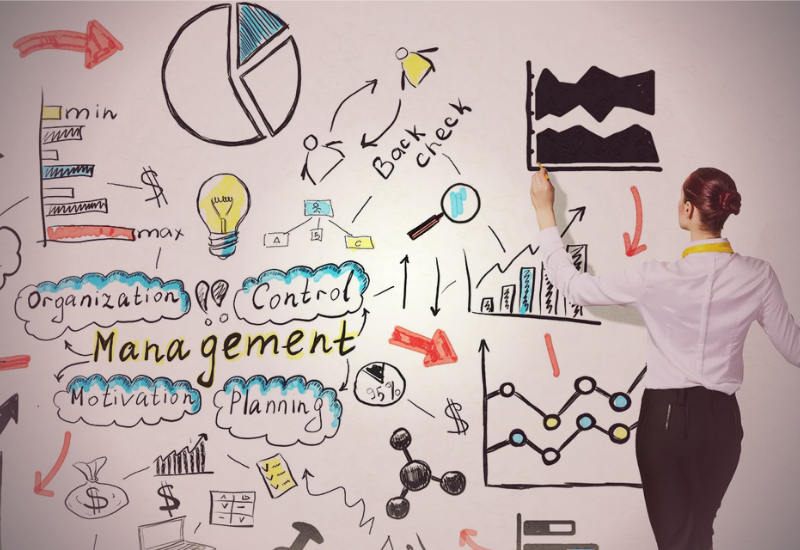 min
max
$
Back
check
A
B
C
Organization
!?
Control
Management
Motivation
Planning
95%
$
$
$
A B